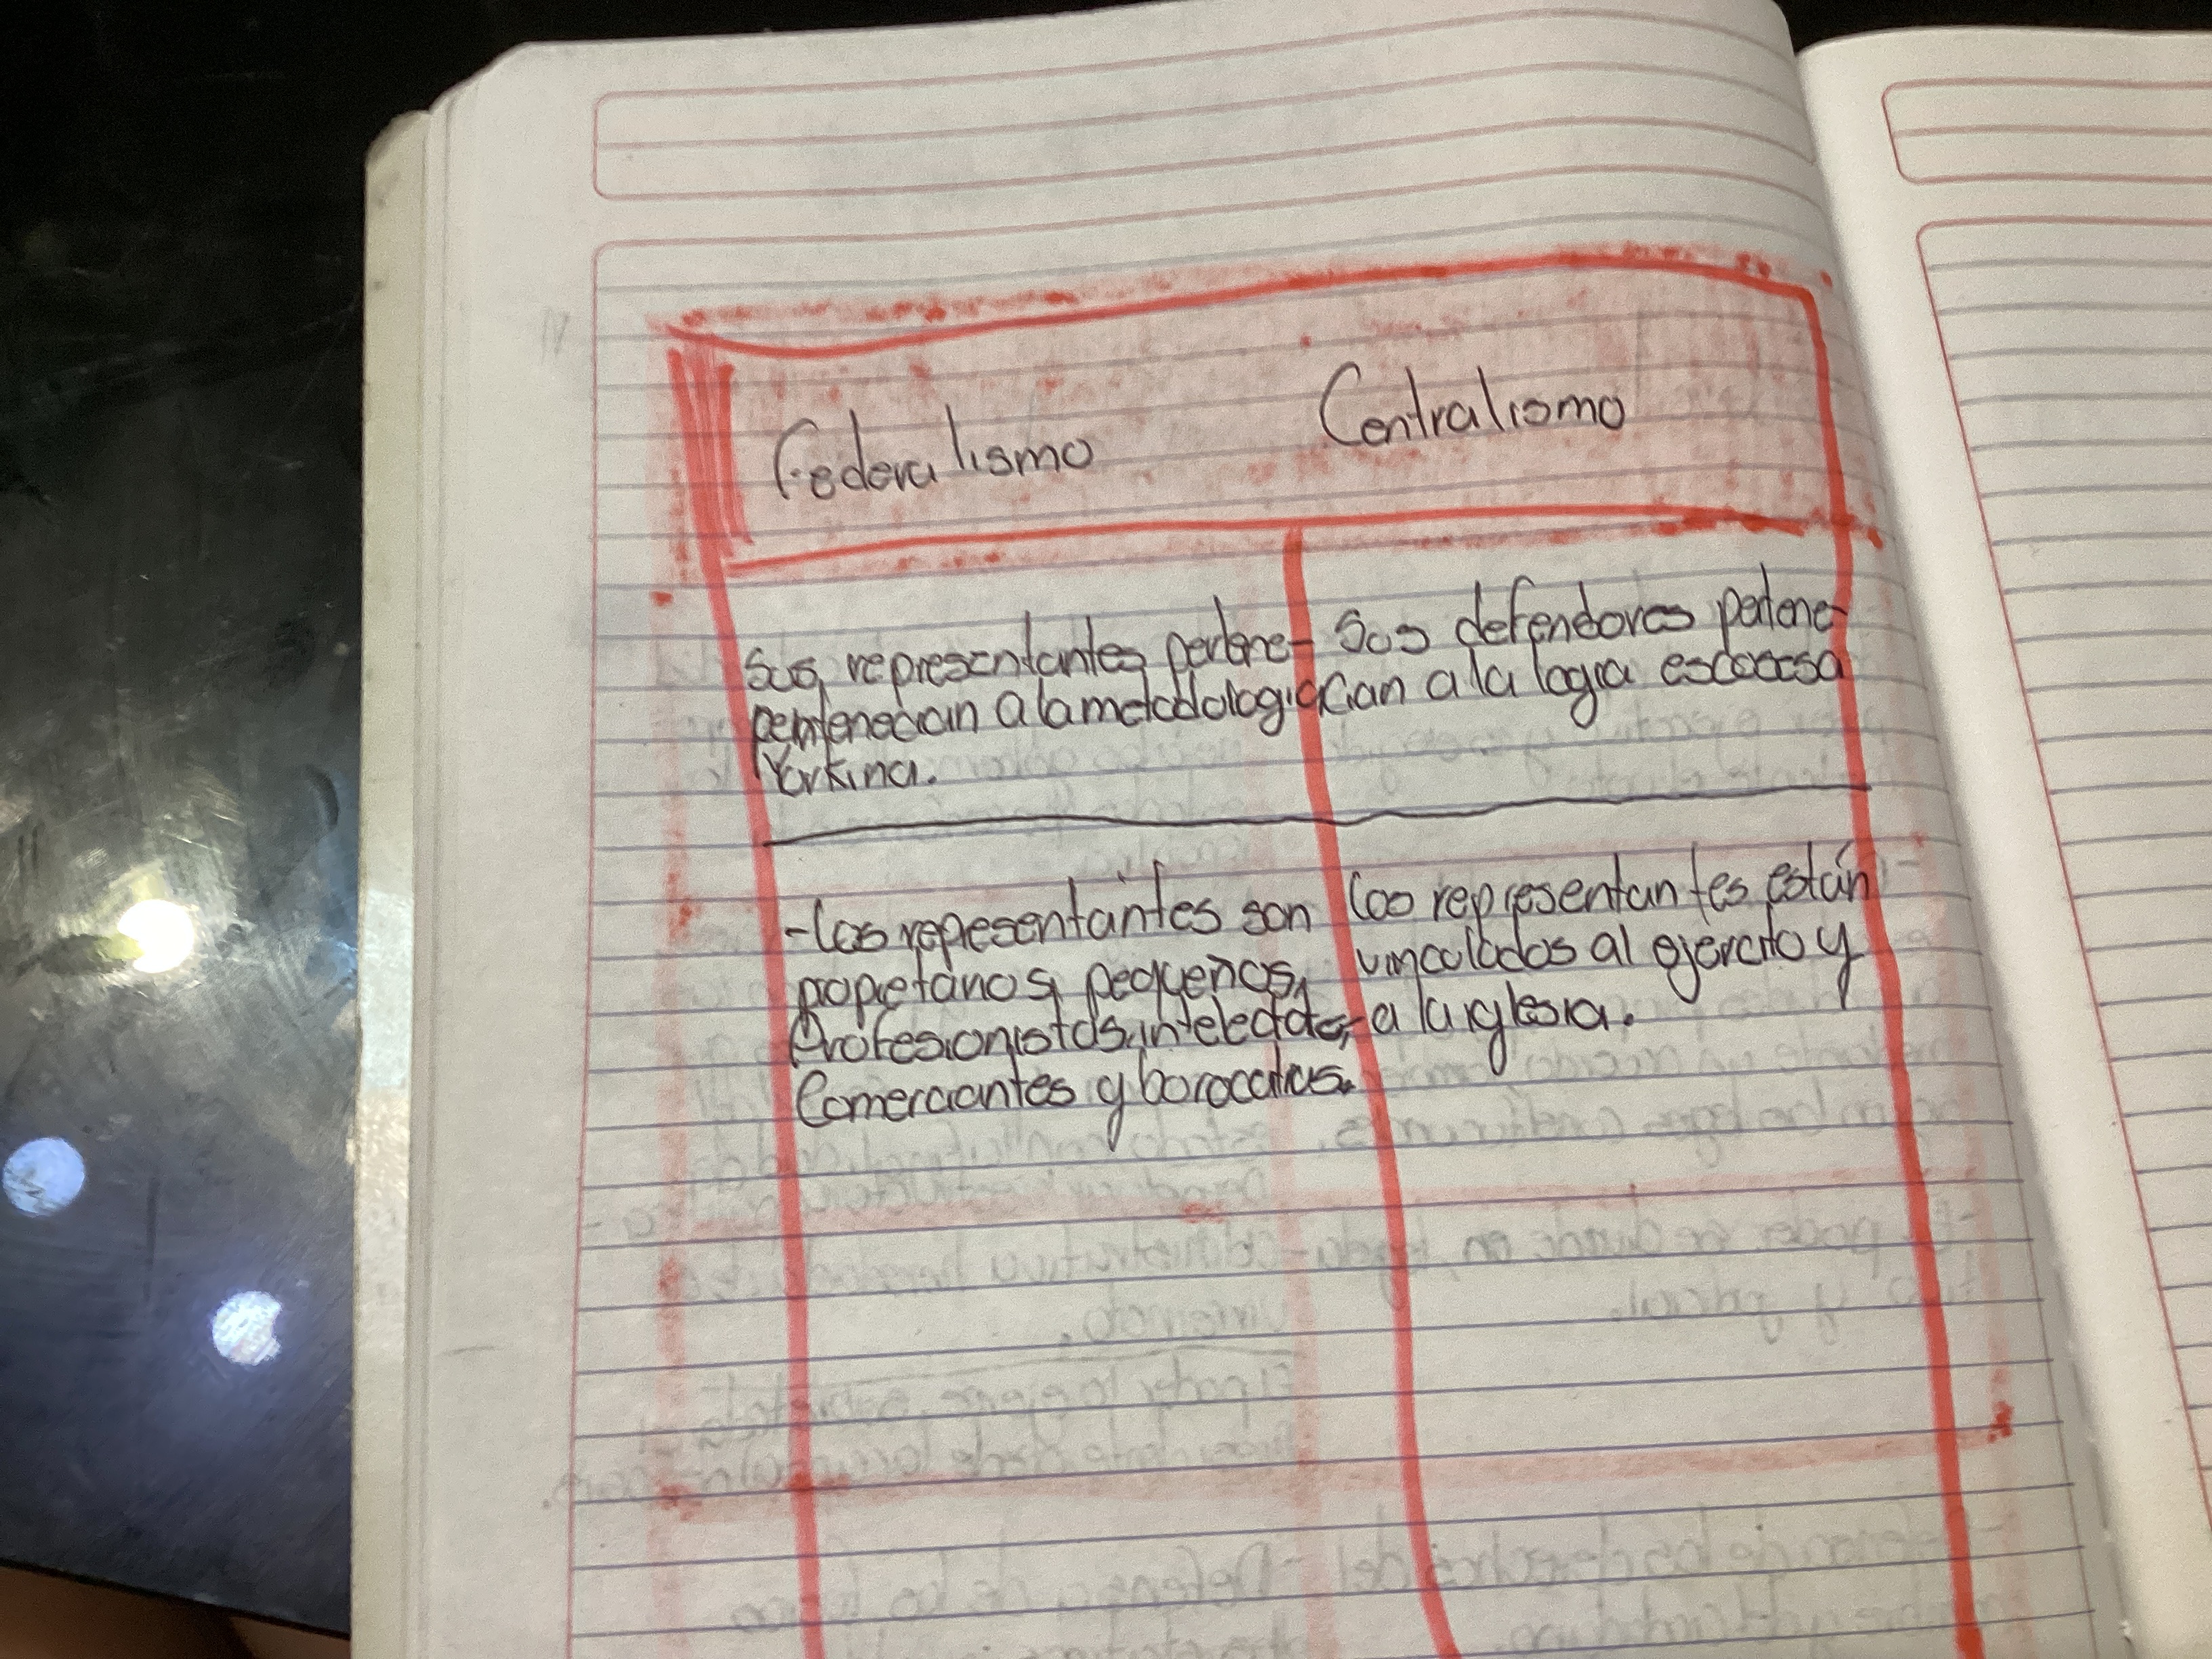 Federalismo
Centralismo
Sus representantes pertene-
pertenecian a la metodologia
Yorkina.
Sus defendores pertene-
cian a la logia escocesa
-Los representantes son
propietarios pequeños,
Profesionistas, intelecto,
Comerciantes y borocatras.
los representantes están
vinculados al ejercito y
a la iglesia.